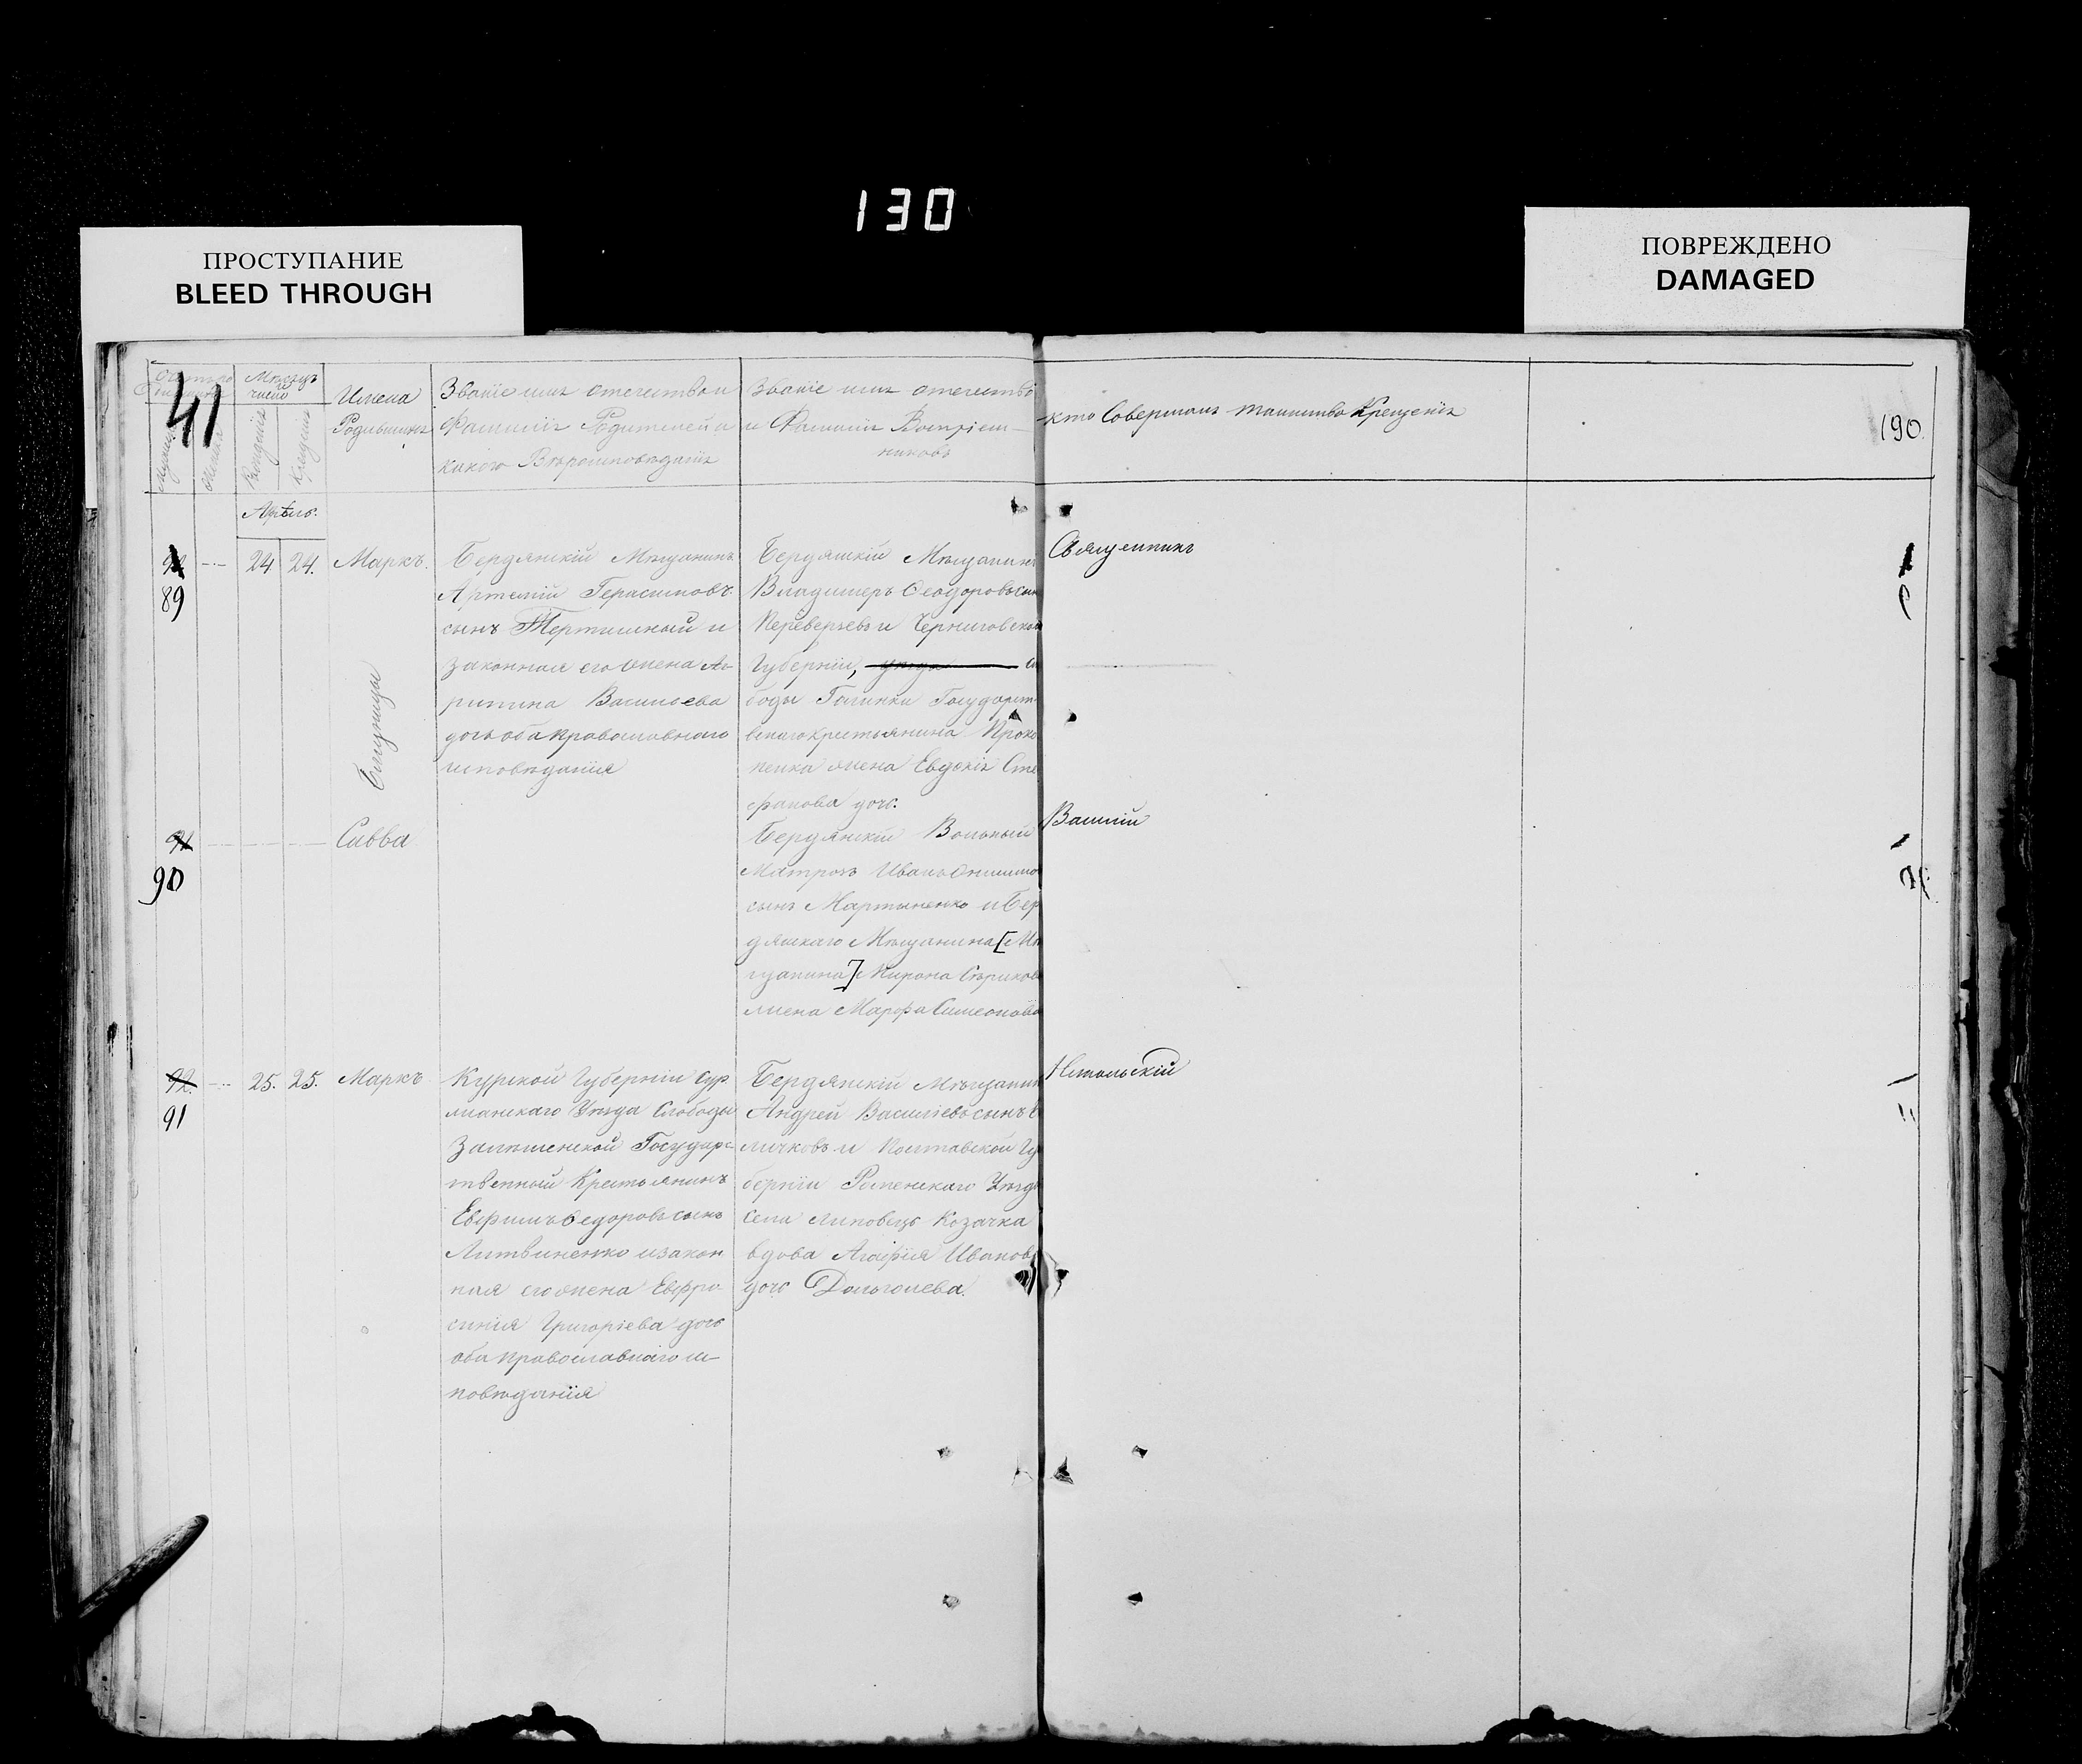 130
ПРОСТУПАНИЕ
BLEED THROUGH
ПОВРЕЖДЕНО
DAMAGED
41
Мѣсяцъ
и
число
Рожденія
Крещенія
Имена
Родившихся
Званіе имя отечество и
Фамилія Родителей и
какого Вѣроисповѣданія
Званіе имя отечество
и Фамилія Воспріем-
никовъ
кто Совершалъ таинство Крещенія
190.
Апрѣль.
89
24 24. Маркъ.
Близнецы
Бердянскій Мѣщанинъ
Артемій Герасимовъ
сынъ Тертишный и
законная его жена Ак-
рипина Васильева
дочь оба православнаго
исповѣданія
Бердянскій Мѣщанинъ
Владимеръ Феодоровъ сынъ
Переверзевъ и Черниговской
Губерніи, уѣзда
боды Государст-
веннаго крестьянина Проко
пенка жена Евдокія Сте
фанова дочь.
Священникъ
91
90
Савва
Бердянскій Вольный
Матросъ Иванъ
сынъ Мартыненко и Бер
дянскаго Мѣщанина [Мѣ
щанина] Мирона
жена Марфа Симеонова
Василій
92.
91
25. 25. Маркъ
Курской Губерніи Суд
жанскаго Уѣзда Слободы
Замостенской Государс-
твенный Крестьянинъ
Евфимъ Федоровъ сынъ
Литвиненко и закон
ная его жена Евфро-
синія Григоріева дочь
оба православнаго ис-
повѣданія
Бердянскій Мѣщанинъ
Андрей Василіевъ сынъ
личковъ и Полтавской Гу
берніи Роменскаго Уѣзда
села Липовецъ Козачка
вдова Агафія Иванова
дочь Долгополева.
Никольскій